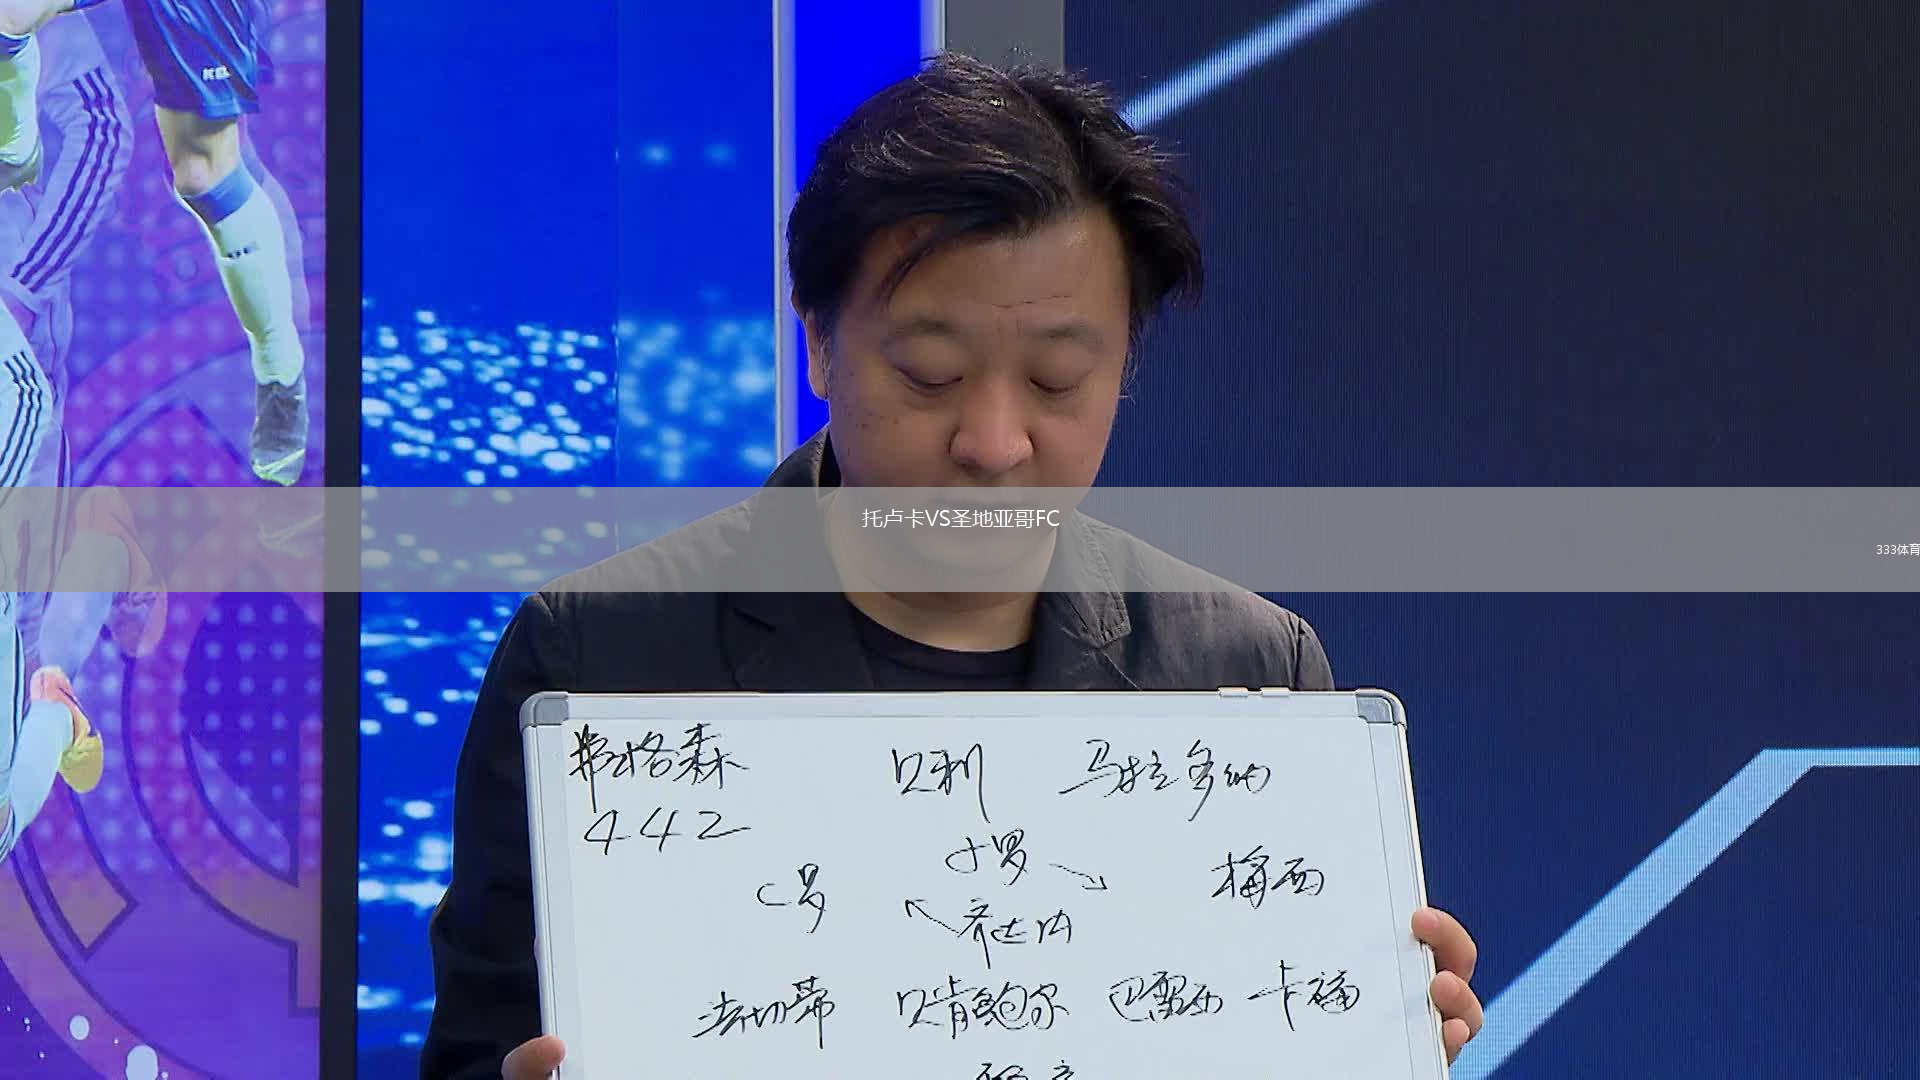 托卢卡VS圣地亚哥FC
333体育
弗格森 贝利 马拉多纳
442
小罗
C罗 梅西
齐达内
法切蒂 贝肯鲍尔 巴雷西 卡福